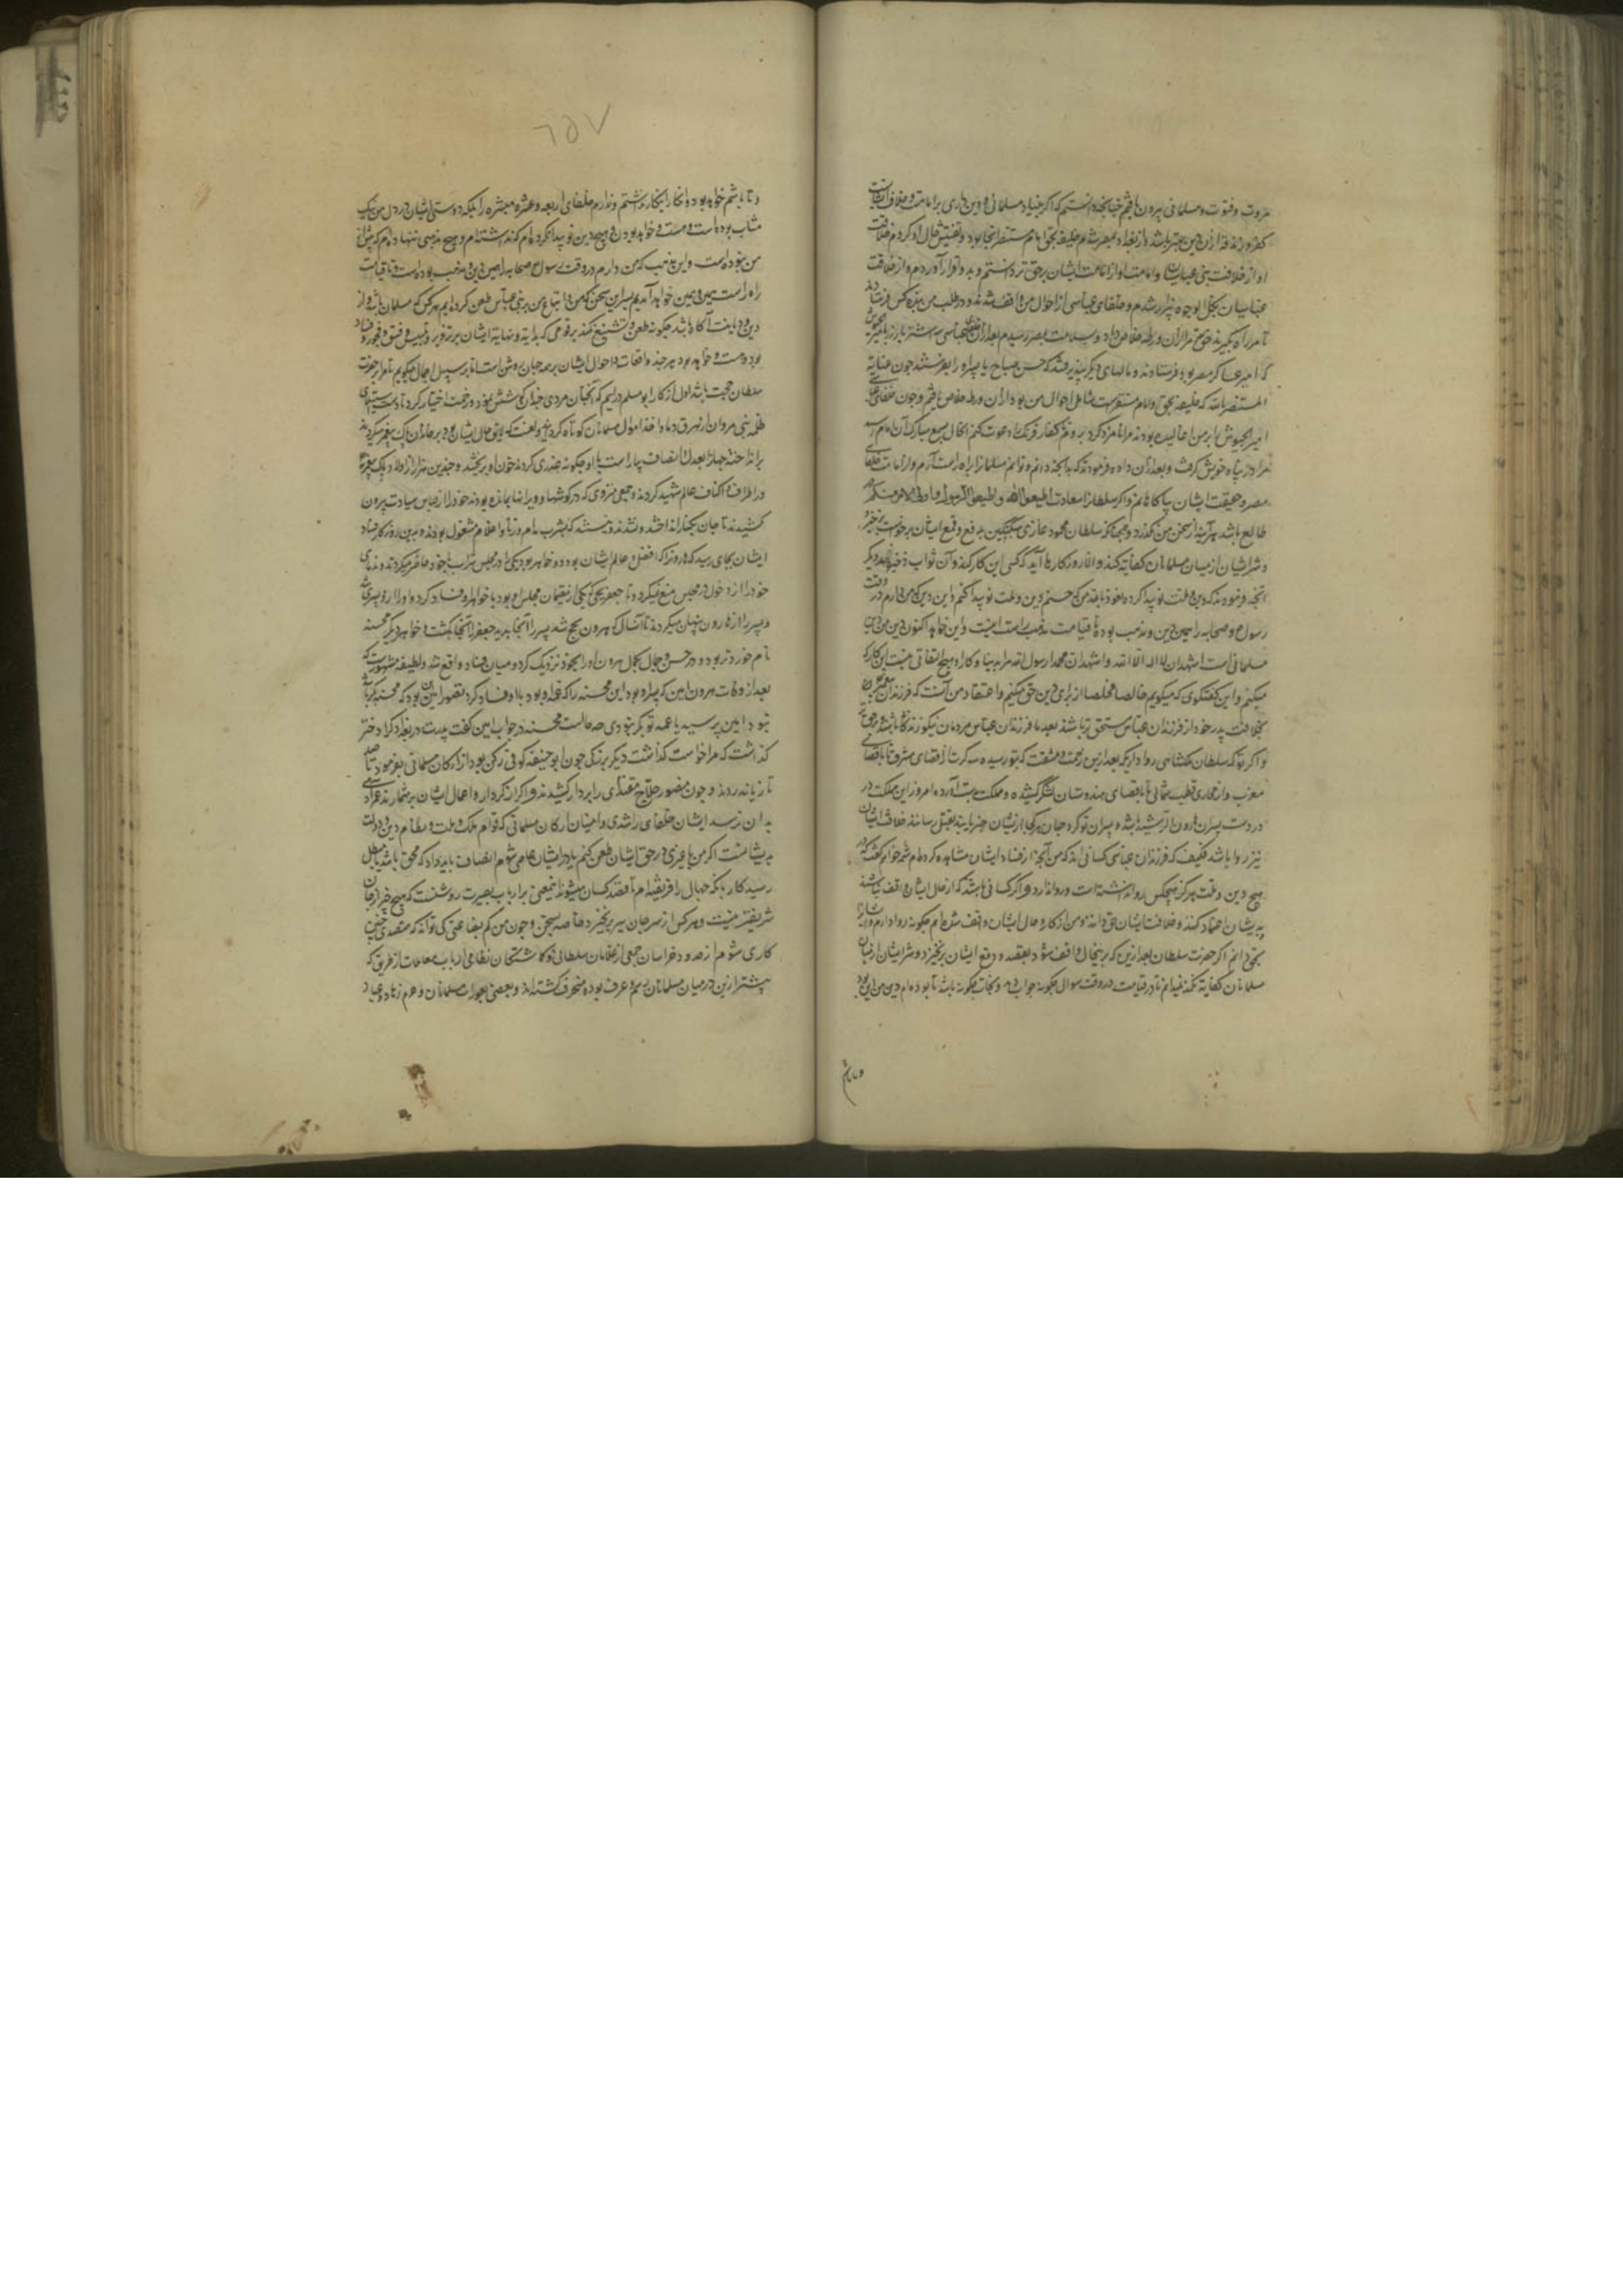 مروت و فتوت و مسلمانی بیرون یافتم چنانچه دانستم که اگر بنیاد مسلمانی و دین داری بر امامت و خلافت ایشانست
کفر و زندقه از آن دین بهتر باشد از بغداد بمصر شدم خلیفه بحق امام مستنصر آنجا بود تفتیش حال او کردم خلافت
او از خلافت بنی عباسیان و امامت او از امامت ایشان برحق تر دانستم و بدو اقرار آوردم و از خلافت
عباسیان بکل الوجوه بیزار شدم و خلفای عباسی از احوال من واقف شدند و در طلب من کس فرستادند
تا مرا در راه بگیرند حق تعالی مرا از آن ورطه خلاص داد و بسلامت بمصر رسیدم بعد از آن خلفای عباسی سه استر بار زر بامیر الجیوش
که امیر عساکر مصر بود فرستادند و مالهای دیگر پذیرفتند که حسن صباح یا سر او را بفرستد چون عنایت
المستنصر بالله که خلیفه بحق و امام مستقر است شامل احوال من بود از آن ورطه خلاص یافتم و چون خلفای عباسی
امیر الجیوش را بر من اغالیده بودند مرا نامزد کرد بروم کفار فرنک را دعوت کنم این حال بسمع مبارک آن امام رسید
مرا در پناه خویش گرفت و بعد از آن داده فرمود که بدانچه دانم و توانم مسلمانان را براه راست آرم و از امامت خلفای
مصر و حقیقت ایشان بیاکاهانم و اگر سلطان را سعادت اطیعوا الله و اطیعوا الرسول و اولی الامر منکم در
طالع باشد هر آینه از سخن من نگذرد و همچنانکه سلطان محمود غازی سبکتکین بدفع و قمع ایشان برخاست برخیزد
و شر ایشان از میان مسلمانان کفایت کند و الا روزکارها آید که کسی این کار کند و آن ثواب ذخیره نهد و دیگر
آنچه فرمودند که دین و ملت نو پیدا کرده نعوذ بالله من که حسنم دین و ملت نو پیدا کنم این دین که من دارم در وقت
رسول ع و صحابه را همین دین و مذهب بوده تا قیامت مذهب راست اینست و این خواهد اکنون دین من دین
مسلمانی است اشهد ان لا اله الا الله و اشهد ان محمدا رسول الله مرا بدنیا و کار او هیچ التفاتی نیست این کار که
میکنم و این گفتگوی که میگویم خالصا مخلصا از برای دین حق میکنم و اعتقاد من آنست که فرزندان پیغمبر
بخلافت پدر خود از فرزندان عباس مستحق تر باشند
و اگر تو که سلطان ملکشاهی روا داری که بعد ازین زحمت و مشقت که بتو رسیده سه کرت از اقصای مشرق تا باقصای
مغرب و از محاذی قطب شمالی تا باقصای هندوستان لشکر کشیده و مملکت بدست آورده امروز این مملکت در
در دست پسران هارون الرشید باشد و پسران تو کرد جهان هر کجا از نشان خبر یابند بقتل رسانند خلافت ایشان
نیز روا باشد فکیف که فرزندان عباس کسانی اند که من آنچه از فساد ایشان مشاهده کرده ام شمه خواهم گفت که در
هیچ دین و ملت هرگز هیچکس روا نداشته است و روا ندارد و اگر کسانی باشند که از حال ایشان واقف نباشند
بدیشان اعتقاد کنند و خلافت ایشان حق دانند و من از کار و حال ایشان واقف شده ام چگونه روا دارم
بحق دانم اگر حضرت سلطان بعد ازین که برینحال واقف شود بقصد و دفع ایشان برنخیزد و شر ایشان از میان
مسلمانان کفایت نکند نمیدانم تا در قیامت در وقت سوال چگونه جواب دهد و نجات چگونه باشد تا بوده ام دین من این بود
و تا باشم
٦٥٧
و تا باشم خواهد بود و انکار نداشتم و ندارم خلفای اربعه و عشره مبشره را بلکه دوستی ایشان در دل من نیک
من بوده است و این مذهب که من دارم در وقت رسول ع صحابه را همین دین و مذهب بوده است و تا قیامت
راه راست همین و همین خواهد آمدیم بر سر این سخن که من و اتباع من بر بنی عباس طعن کرده ایم هر کس که مسلمان باشد و از
دین و دیانت آگاه باشد چگونه طعن و تشنیع نکند بر قومی که بدایت و نهایت ایشان بر تزویر و تلبیس و فسق و فجور و فساد
بوده و هست و خواهد بود هر چند واقعات و احوال ایشان بر همه جهان روشن است اما بر سبیل اجمال میگویم تا مرا بر حضرت
سلطان حجت باشد اول از کار ابو مسلم درآییم که آنچنان مردی چندان کوشش نمود و زحمت اختیار کرد تا دست استیلای
ظلمه بنی مروان از هرق دما و اخذ اموال مسلمانان کوتاه کردانید و لعنت که لایق حال ایشان بود بر خاندان پاک پیغمبر میکردند
برانداخت و جهان را بعدل و انصاف بیاراست با او چگونه غدری کردند و خون او بریختند و چندین هزار از اولاد پاک پیغمبر
در اطراف و اکناف عالم شهید کردند و جمعی منزوی که در گوشها و ویرانها بمانده بودند خود را از لباس سیادت بیرون
کشیدند تا جان بکنار انداختند و بشرب مدام و زنا و اغلام مشغول بودند و برین روزگار فساد
ایشان بجای رسید که هرون را که افضل و عالم ایشان بود دو خواهر بود یکی را در مجلس شراب با خود حاضر میکرد و ندمای
خود را از دخول در مجلس منع نمیکرد تا جعفر یحیی که یکی از ندیمان مجلس او بود با خواهر او فساد کرد و او را ازو پسری شد
و پسر را از هارون پنهان میکردند تا آن سال که هرون بحج شد پسر را آنجا بدید جعفر را آنجا بکشت و خواهر دیگر محسنه
نام خوردتر بود و در حسن و جمال بکمال هرون او را بخود نزدیک کرد و میان فساد واقع شد و لطیفه مشهورست که
بعد از وفات هرون امین که پسر او بود این محسنه را که عمه او بود با او فساد کرد تصور امین آن بود که محسنه بکر باشد
نبود امین پرسید یا عمه تو بکر نبودی چه حالست محسنه در جواب امین گفت پدرت در بغداد کرا دختر
گذاشت که مرا خواست گذاشت دیگر بزرگی چون ابو حنیفه کوفی رکن بود از ارکان مسلمانی بفرمود تا صد
تازیانه زدند و چون منصور حلاج مقتدای را بر دار کشیدند و اگر از کردار و اعمال ایشان بر شمارند عمر آدمی
بدان نرسد ایشان خلفای راشدی و امینان ارکان مسلمانی که قوام ملک و ملت و نظام دین و دولت
بدیشانست اگر من یا غیری در حق ایشان طعن کنم یا در ایشان عاصی شوم انصاف باید داد که محق باشد یا مبطل
رسید کار بآنکه جهال را فریفته ام تا قصد کسان میشوند اینمعنی بر ارباب بصیرت روشنست که هیچ چیز از جان
شریفتر نیست و هر کس از سر جان بر نخیزد خاصه بسخن و چون من کم بضاعتی کی تواند که متصدی چنین
کاری شوم از حدود خراسان جمعی از غلامان سلطانی و گماشتگان نظامی ارباب معاملات از طریق که
پیشتر ازین در میان مسلمانان رسم و عرف بوده منحرف گشته اند و بعضی بعورات مسلمانان و حرم زهاد و عباد